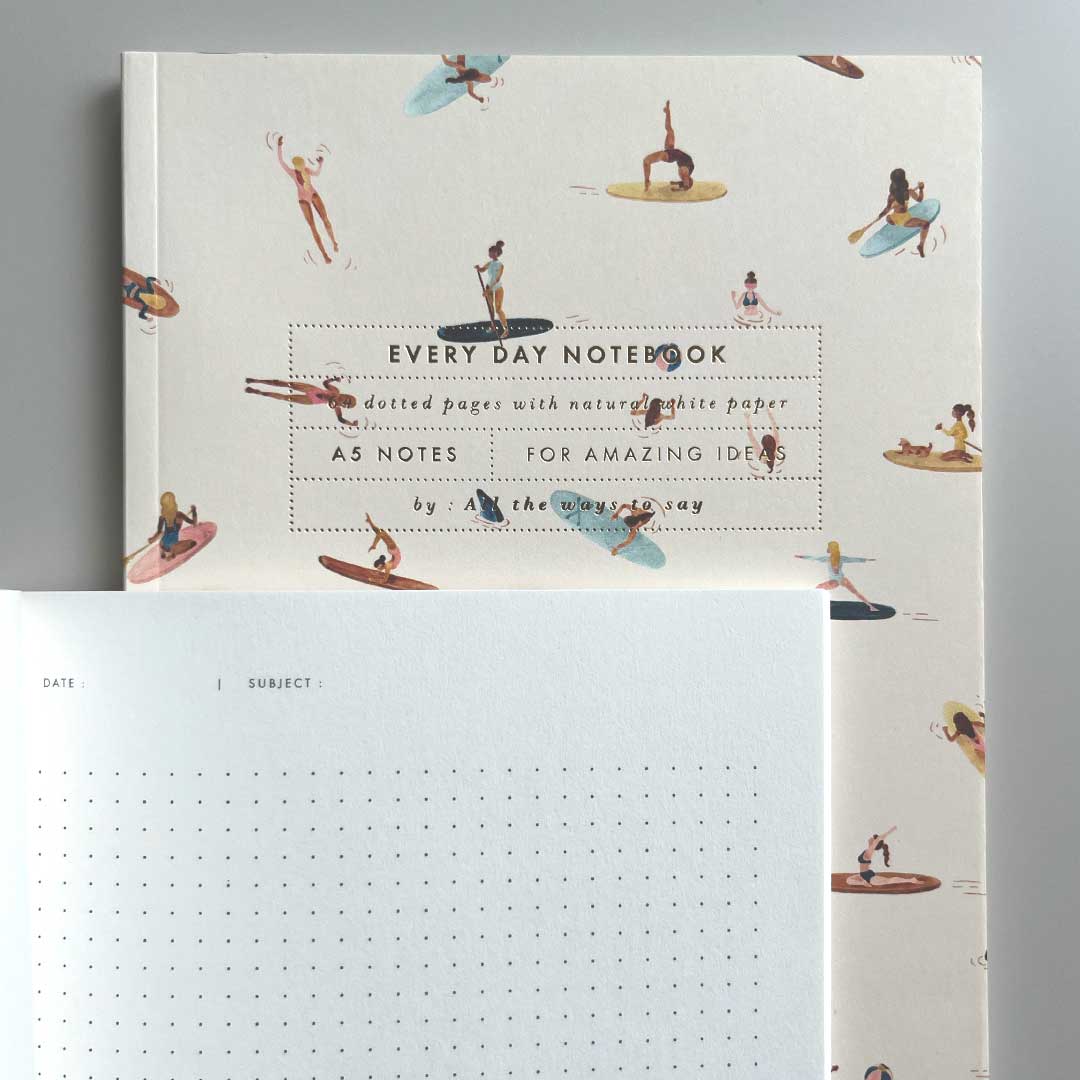 EVERY DAY NOTEBOOK
64 dotted pages with natural white paper
A5 NOTES FOR AMAZING IDEAS
by : All the ways to say
DATE : | SUBJECT :